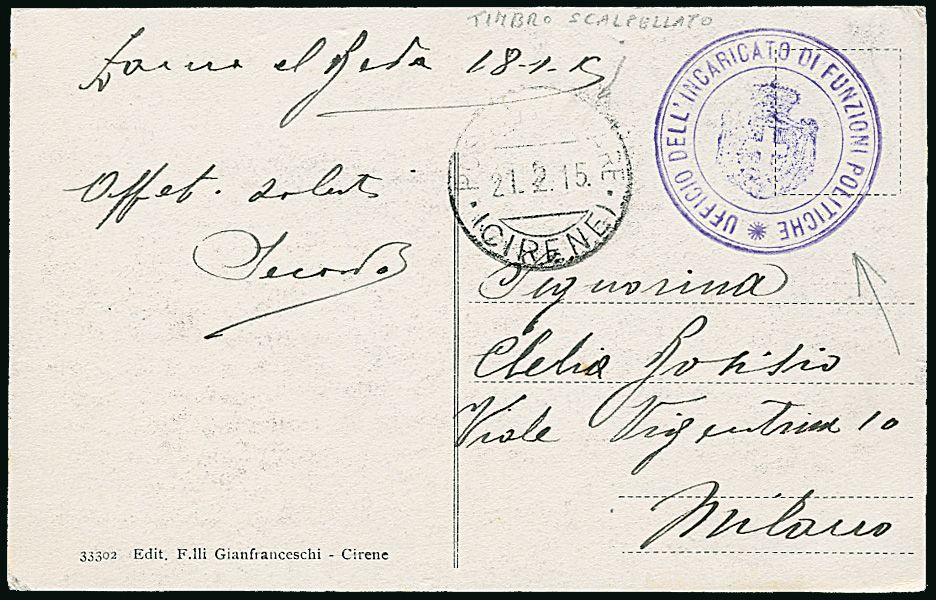 TIMBRO SCALPELLATO
el Beda 18-1-15
Affet. saluti
Secondo
21.2.15.
(CIRENE)
UFFICIO DELL'INCARICATO DI FUNZIONI POLITICHE
Signorina
Clelia
Viale Vigentina 10
Milano
33302 Edit. F.lli Gianfranceschi - Cirene